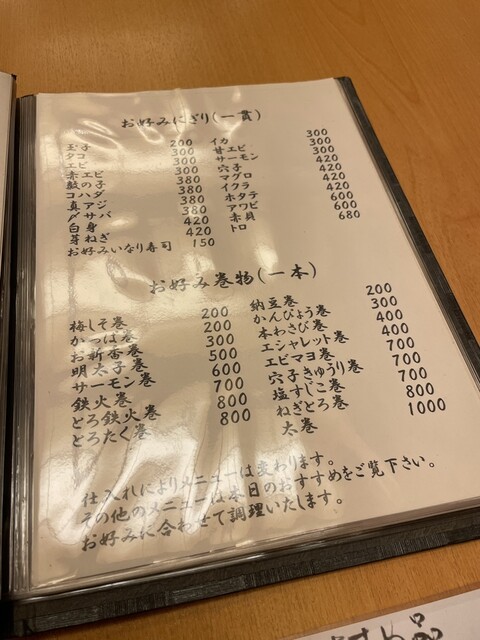 お好みにぎり(一貫)
玉子
タコ
エビ
赤エビ
数の子
コハダ
真アジ
〆サバ
白身
芽ねぎ
お好みいなり寿司
200
300
300
380
380
380
380
420
420
150
イカ
甘エビ
サーモン
穴子
マグロ
イクラ
ホタテ
アワビ
赤貝
トロ
300
300
420
420
420
420
600
600
680
お好み巻物(一本)
梅しそ巻 200
かっぱ巻 200
お新香巻 300
明太子巻 500
サーモン巻 600
鉄火巻 700
とろ鉄火巻 800
とろたく巻 800
納豆巻 200
かんぴょう巻 300
本わさび巻 400
エシャレット巻 400
エビマヨ巻 700
穴子きゅうり巻 700
塩すじこ巻 700
ねぎとろ巻 800
太巻 1000
仕入れによりメニューは変わります。
その他のメニューは本日のおすすめをご覧下さい。
お好みに合わせて調理いたします。